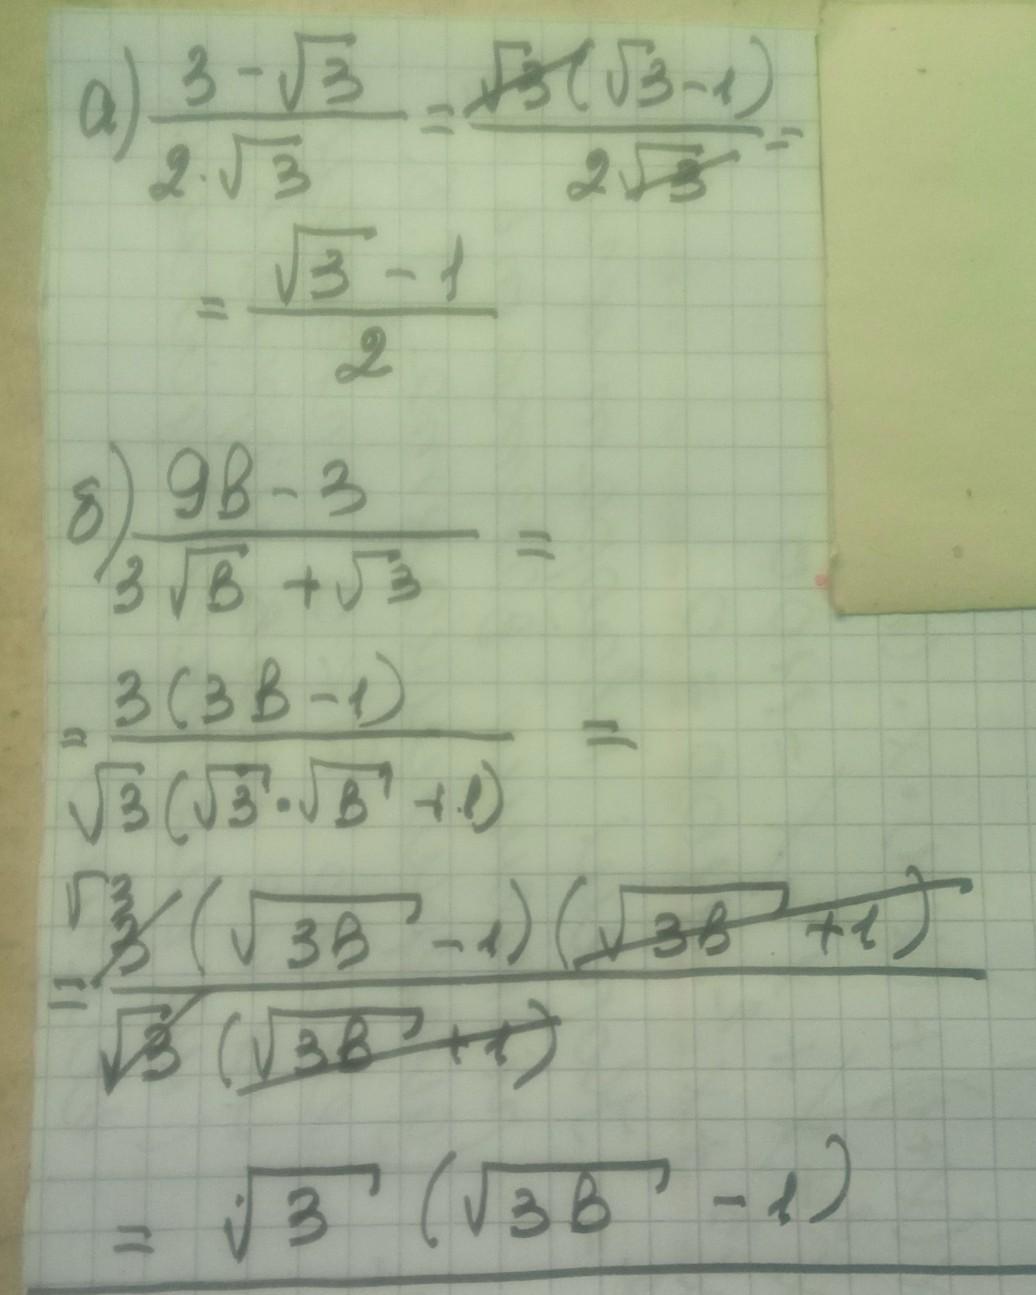 а) (3 - √3)/(2 · √3) = (√3(√3 - 1))/(2√3) =
= (√3 - 1)/2
б) (9в - 3)/(3√в + √3) =
= (3(3в - 1))/(√3(√3 · √в + 1)) =
= (√3 3(√3в - 1)(√3в + 1))/(√3(√3в + 1))
= √3 (√3в - 1)